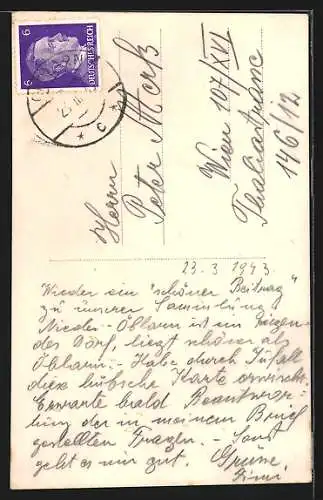 6 6
DEUTSCHES REICH
Herrn
Peter Merk
Wien 107/XVI
Thaliastrasse
146/12
23.3.1943.
Wieder ein "schöner Beitrag"
zu unserer Sammlung
Nieder-Öblarn ist ein
des Dorf, liegt schöner als
Öblarn. - Habe durch Zufall
diese hübsche Karte erwischt.
Erwarte bald Beantwor-
tung der in meinem Brief
gestellten Fragen. - Sonst
geht es mir gut. Grüsse,